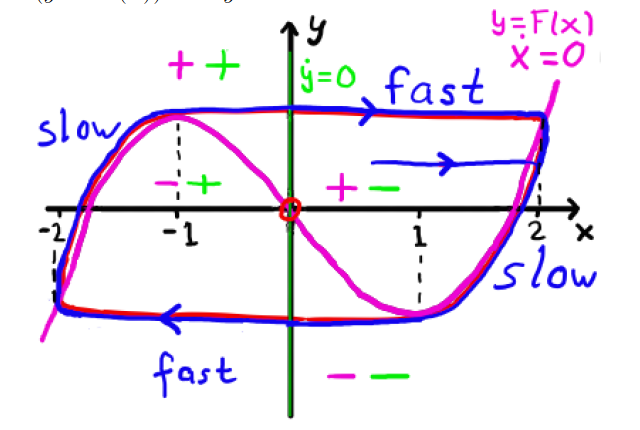 y = F(x)
ẋ = 0
y
+ +
ẏ = 0
fast
slow
- +
+ -
-2
-1
1
2
x
slow
fast
- -